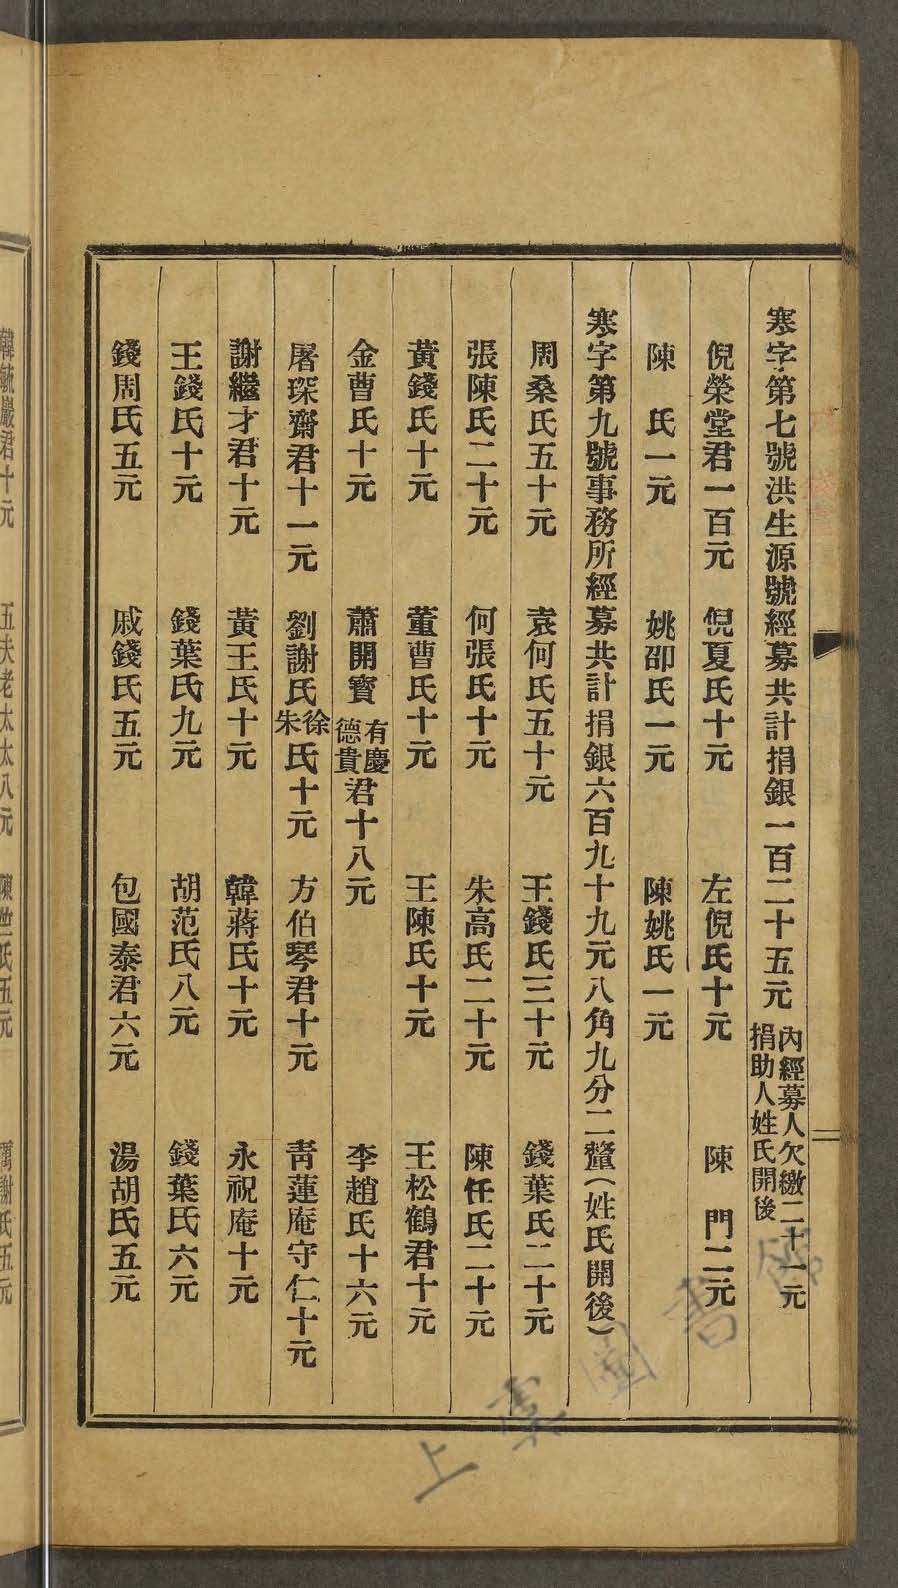 寒字第七號洪生源號經募共計捐銀一百二十五元 內經募人欠繳二十一元捐助人姓氏開後
倪榮堂君一百元 倪夏氏十元 左倪氏十元 陳 門二元
陳 氏一元 姚邵氏一元 陳姚氏一元
寒字第九號事務所經募共計捐銀六百九十九元八角九分二釐(姓氏開後)
周桑氏五十元 袁何氏五十元 王錢氏三十元 錢葉氏二十元
張陳氏二十元 何張氏十元 朱高氏二十元 陳任氏二十元
黃錢氏十元 董曹氏十元 王陳氏十元 王松鶴君十元
金曹氏十元 蕭開寶有慶德貴君十八元 李趙氏十六元
屠琛齋君十一元 劉謝氏徐朱氏十元 方伯琴君十元 青蓮庵守仁十元
謝繼才君十元 黃王氏十元 韓蔣氏十元 永祝庵十元
王錢氏十元 錢葉氏九元 胡范氏八元 錢葉氏六元
錢周氏五元 戚錢氏五元 包國泰君六元 湯胡氏五元
上虞圖書館